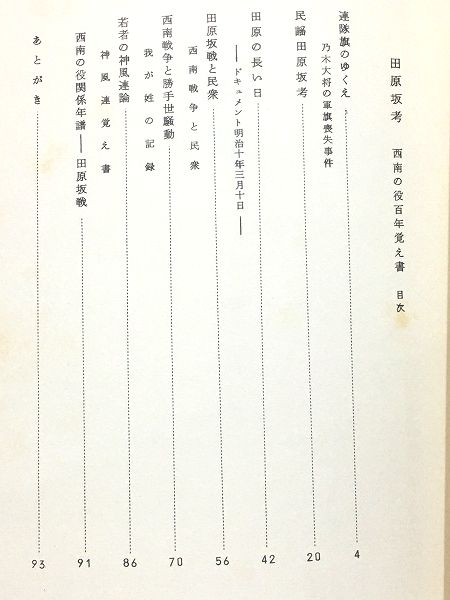 田原坂考　西南の役百年覚え書　目次
連隊旗のゆくえ……4
乃木大将の軍旗喪失事件
民謡田原坂考……20
田原の長い日……42
――ドキュメント明治十年三月十日――
田原坂戦と民衆……56
西南戦争と民衆
西南戦争と勝手世騒動……70
我が姓の記録
若者の神風連論……86
神風連覚え書
西南の役関係年譜――田原坂戦……91
あとがき……93